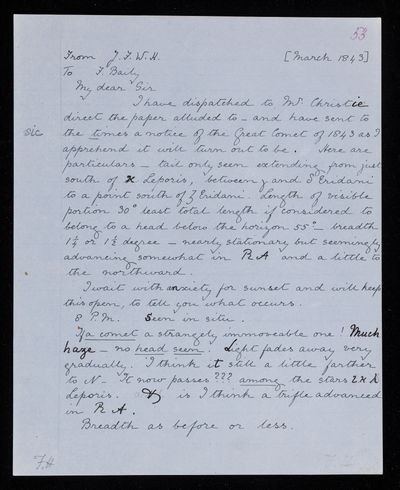 53
From J. F. W. H. [March 1843]
To F. Baily
My dear Sir
I have dispatched to Mr. Christie
sic direct the paper alluded to - and have sent to
the times a notice of the Great Comet of 1843 as I
apprehend it will turn out to be. Here are
particulars - tail only seen extending from just
south of κ Leporis, between γ and δ Eridani
to a point south of ζ Eridani. Length of visible
portion 30° least total length if considered to
belong to a head below the horizon 55° - breadth
1¼ or 1½ degree - nearly stationary but seemingly
advancing somewhat in RA and a little to
the northward.
I wait with anxiety for sunset and will keep
this open, to tell you what occurs.
8 P.M. Seen in situ.
If a comet a strangely immoveable one! Much
haze - no head seen. Light fades away very
gradually. I think it still a little farther
to N - It now passes ??? among the stars
Leporis. is I think a trifle advanced
in RA.
Breadth as before or less.
F.H